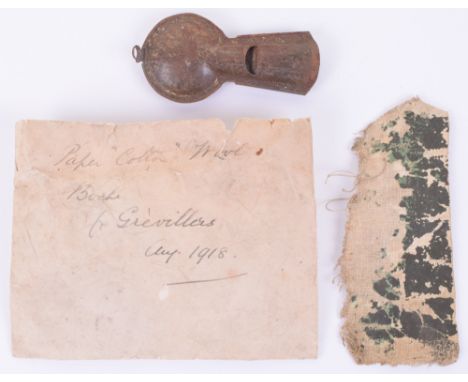 Paper "Cotton" Wool
Boche
Grévillers
Aug. 1918.